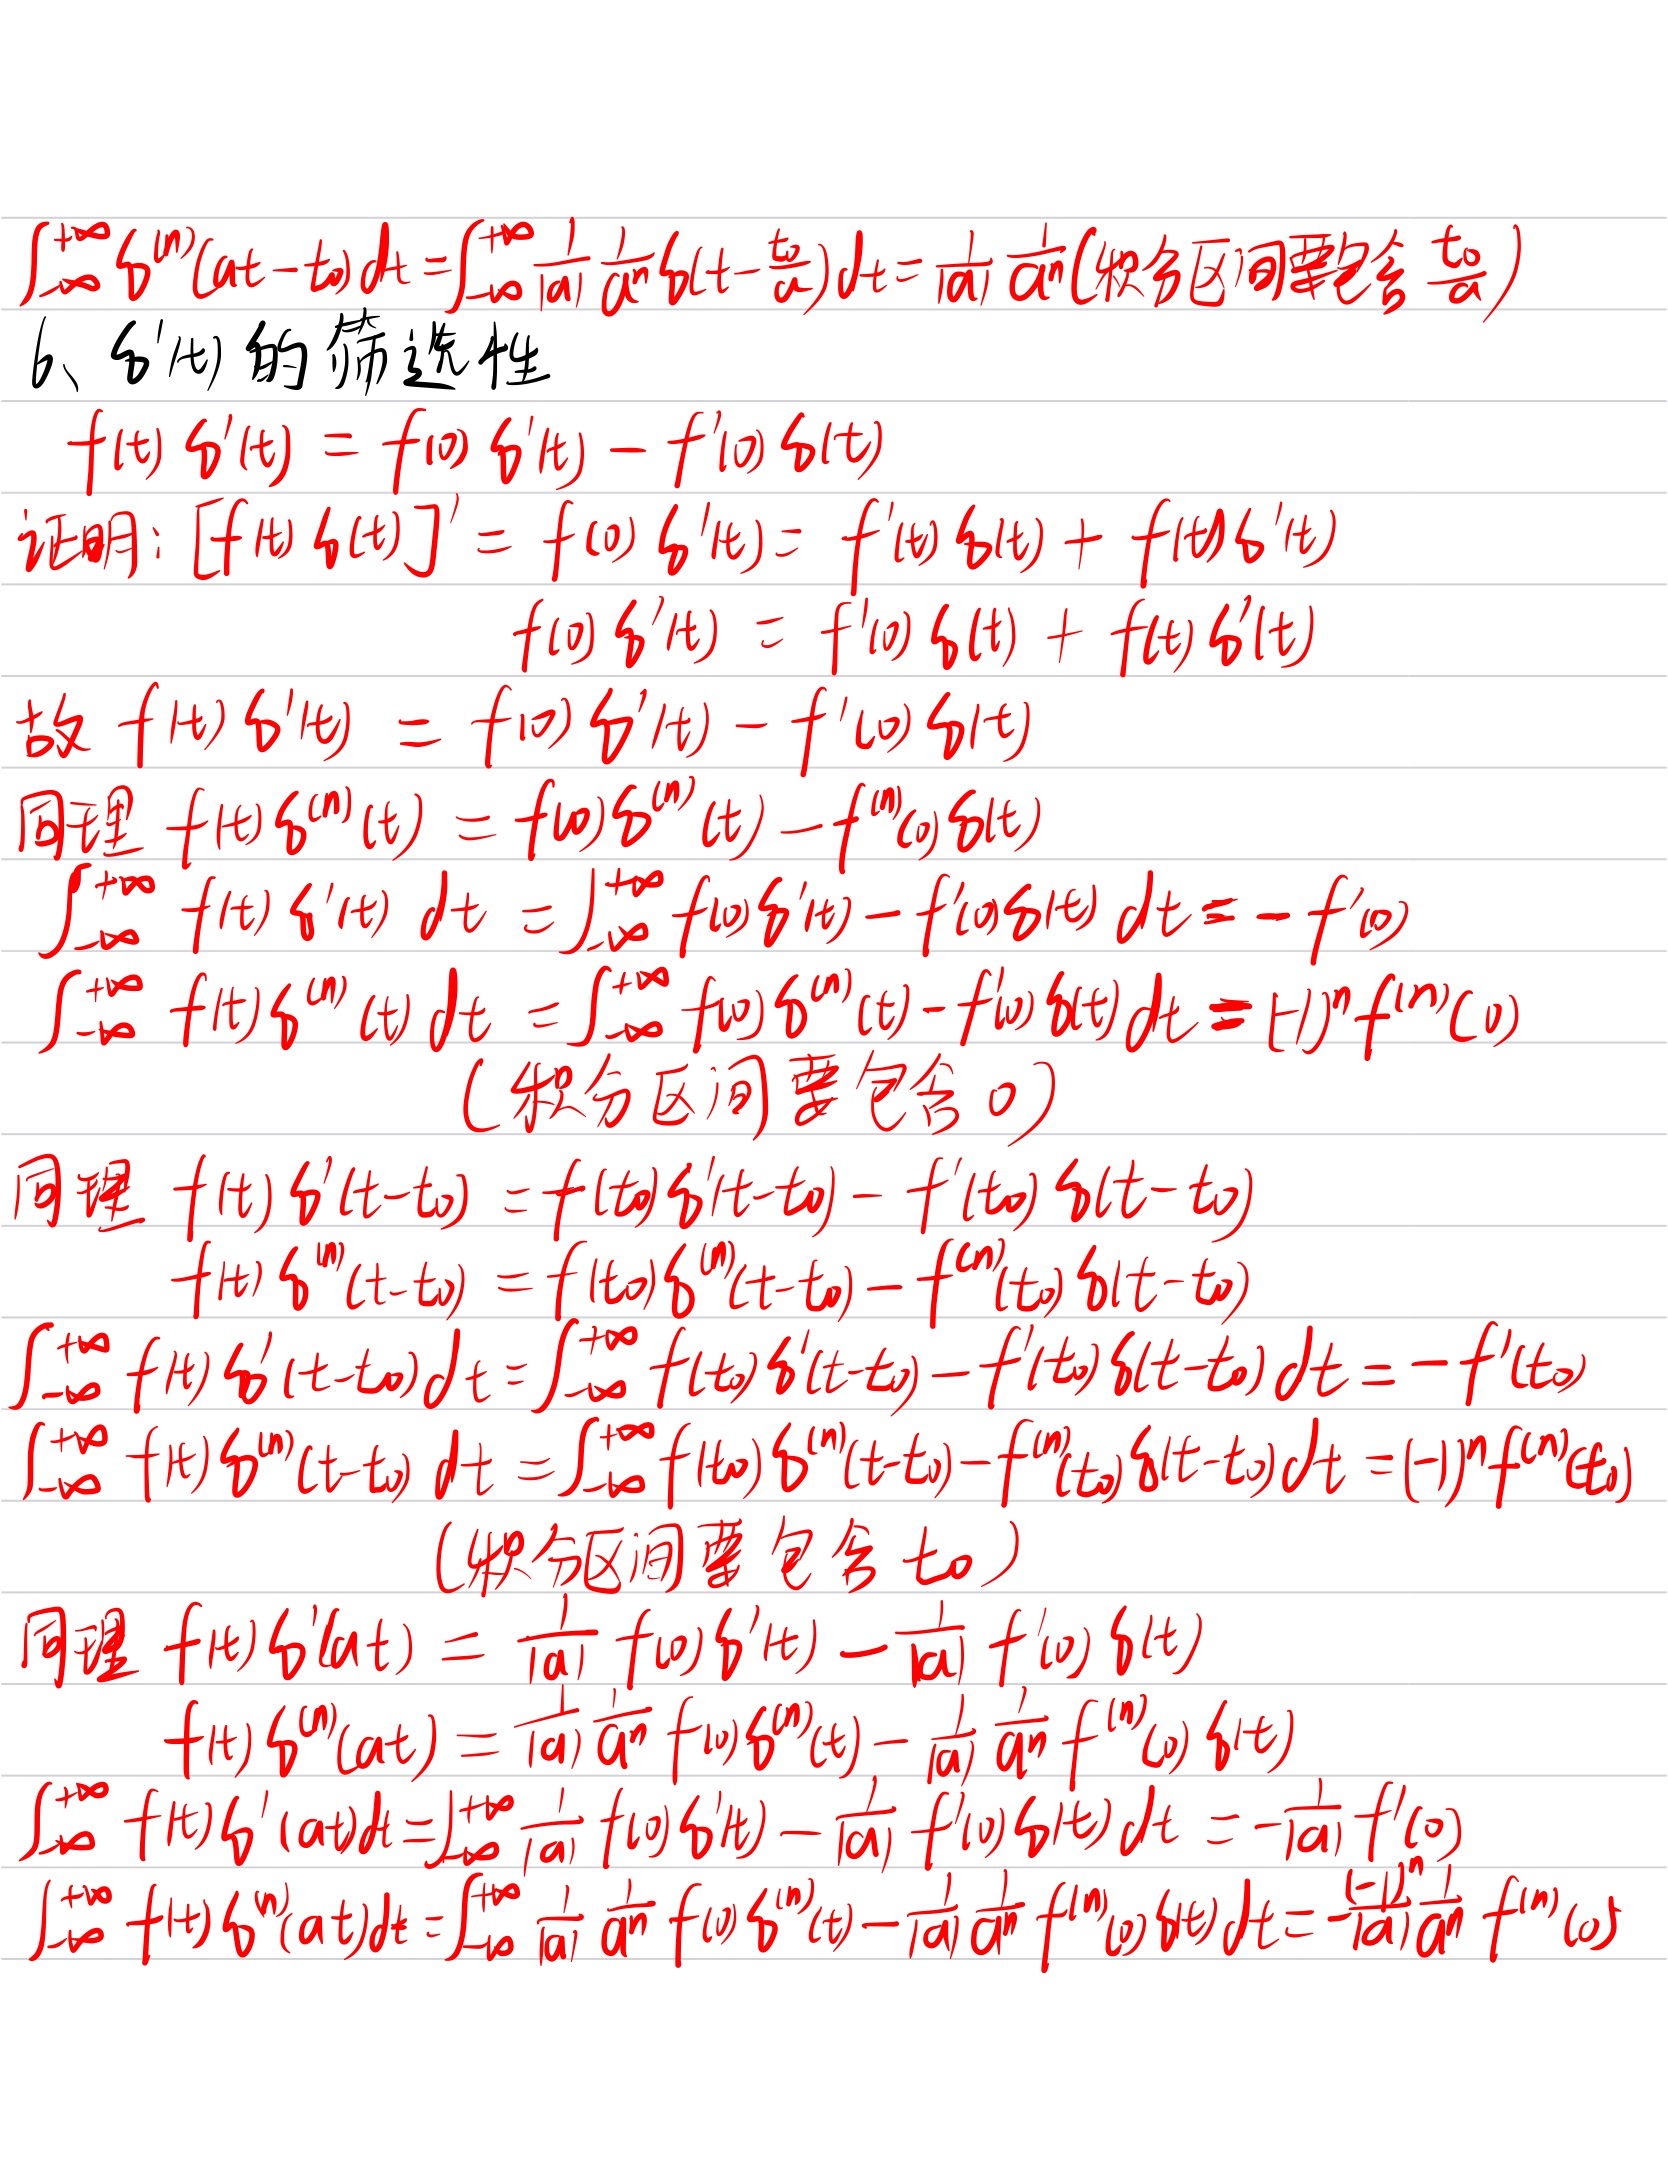 ∫_{-∞}^{+∞} δ^{(n)}(at-t₀)dt = ∫_{-∞}^{+∞} 1/|a| 1/aⁿ δ(t-t₀/a)dt = 1/|a| 1/aⁿ (积分区间要包含 t₀/a)
6、δ'(t) 的筛选性
f(t) δ'(t) = f(0) δ'(t) - f'(0) δ(t)
证明: [f(t) δ(t)]' = f(0) δ'(t) = f'(t) δ(t) + f(t) δ'(t)
f(0) δ'(t) = f'(0) δ(t) + f(t) δ'(t)
故 f(t) δ'(t) = f(0) δ'(t) - f'(0) δ(t)
同理 f(t) δ^{(n)}(t) = f(0) δ^{(n)}(t) - f^{(n)}(0) δ(t)
∫_{-∞}^{+∞} f(t) δ'(t) dt = ∫_{-∞}^{+∞} f(0) δ'(t) - f'(0) δ(t) dt = - f'(0)
∫_{-∞}^{+∞} f(t) δ^{(n)}(t) dt = ∫_{-∞}^{+∞} f(0) δ^{(n)}(t) - f'(0) δ(t) dt = (-1)ⁿ f^{(n)}(0)
(积分区间要包含 0)
同理 f(t) δ'(t-t₀) = f(t₀) δ'(t-t₀) - f'(t₀) δ(t-t₀)
f(t) δ^{(n)}(t-t₀) = f(t₀) δ^{(n)}(t-t₀) - f^{(n)}(t₀) δ(t-t₀)
∫_{-∞}^{+∞} f(t) δ'(t-t₀) dt = ∫_{-∞}^{+∞} f(t₀) δ'(t-t₀) - f'(t₀) δ(t-t₀) dt = - f'(t₀)
∫_{-∞}^{+∞} f(t) δ^{(n)}(t-t₀) dt = ∫_{-∞}^{+∞} f(t₀) δ^{(n)}(t-t₀) - f^{(n)}(t₀) δ(t-t₀) dt = (-1)ⁿ f^{(n)}(t₀)
(积分区间要包含 t₀)
同理 f(t) δ'(at) = 1/|a| f(0) δ'(t) - 1/|a| f'(0) δ(t)
f(t) δ^{(n)}(at) = 1/|a| 1/aⁿ f(0) δ^{(n)}(t) - 1/|a| 1/aⁿ f^{(n)}(0) δ(t)
∫_{-∞}^{+∞} f(t) δ'(at)dt = ∫_{-∞}^{+∞} 1/|a| f(0) δ'(t) - 1/|a| f'(0) δ(t) dt = - 1/|a| f'(0)
∫_{-∞}^{+∞} f(t) δ^{(n)}(at)dt = ∫_{-∞}^{+∞} 1/|a| 1/aⁿ f(0) δ^{(n)}(t) - 1/|a| 1/aⁿ f^{(n)}(0) δ(t) dt = - (-1)ⁿ/|a| 1/aⁿ f^{(n)}(0)